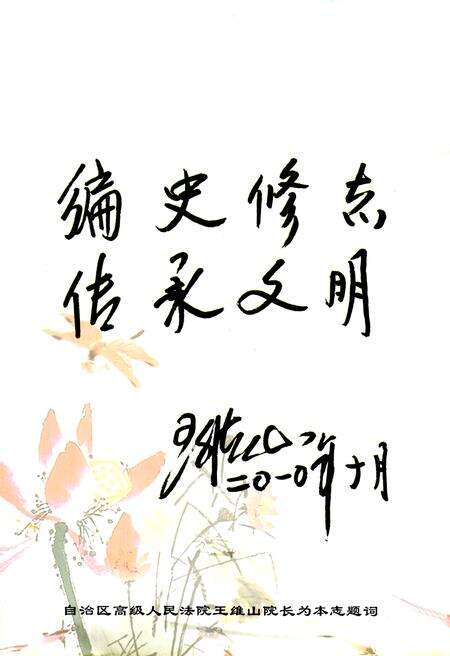 编史修志
传承文明
王维山
二〇一〇年十月
自治区高级人民法院王维山院长为本志题词